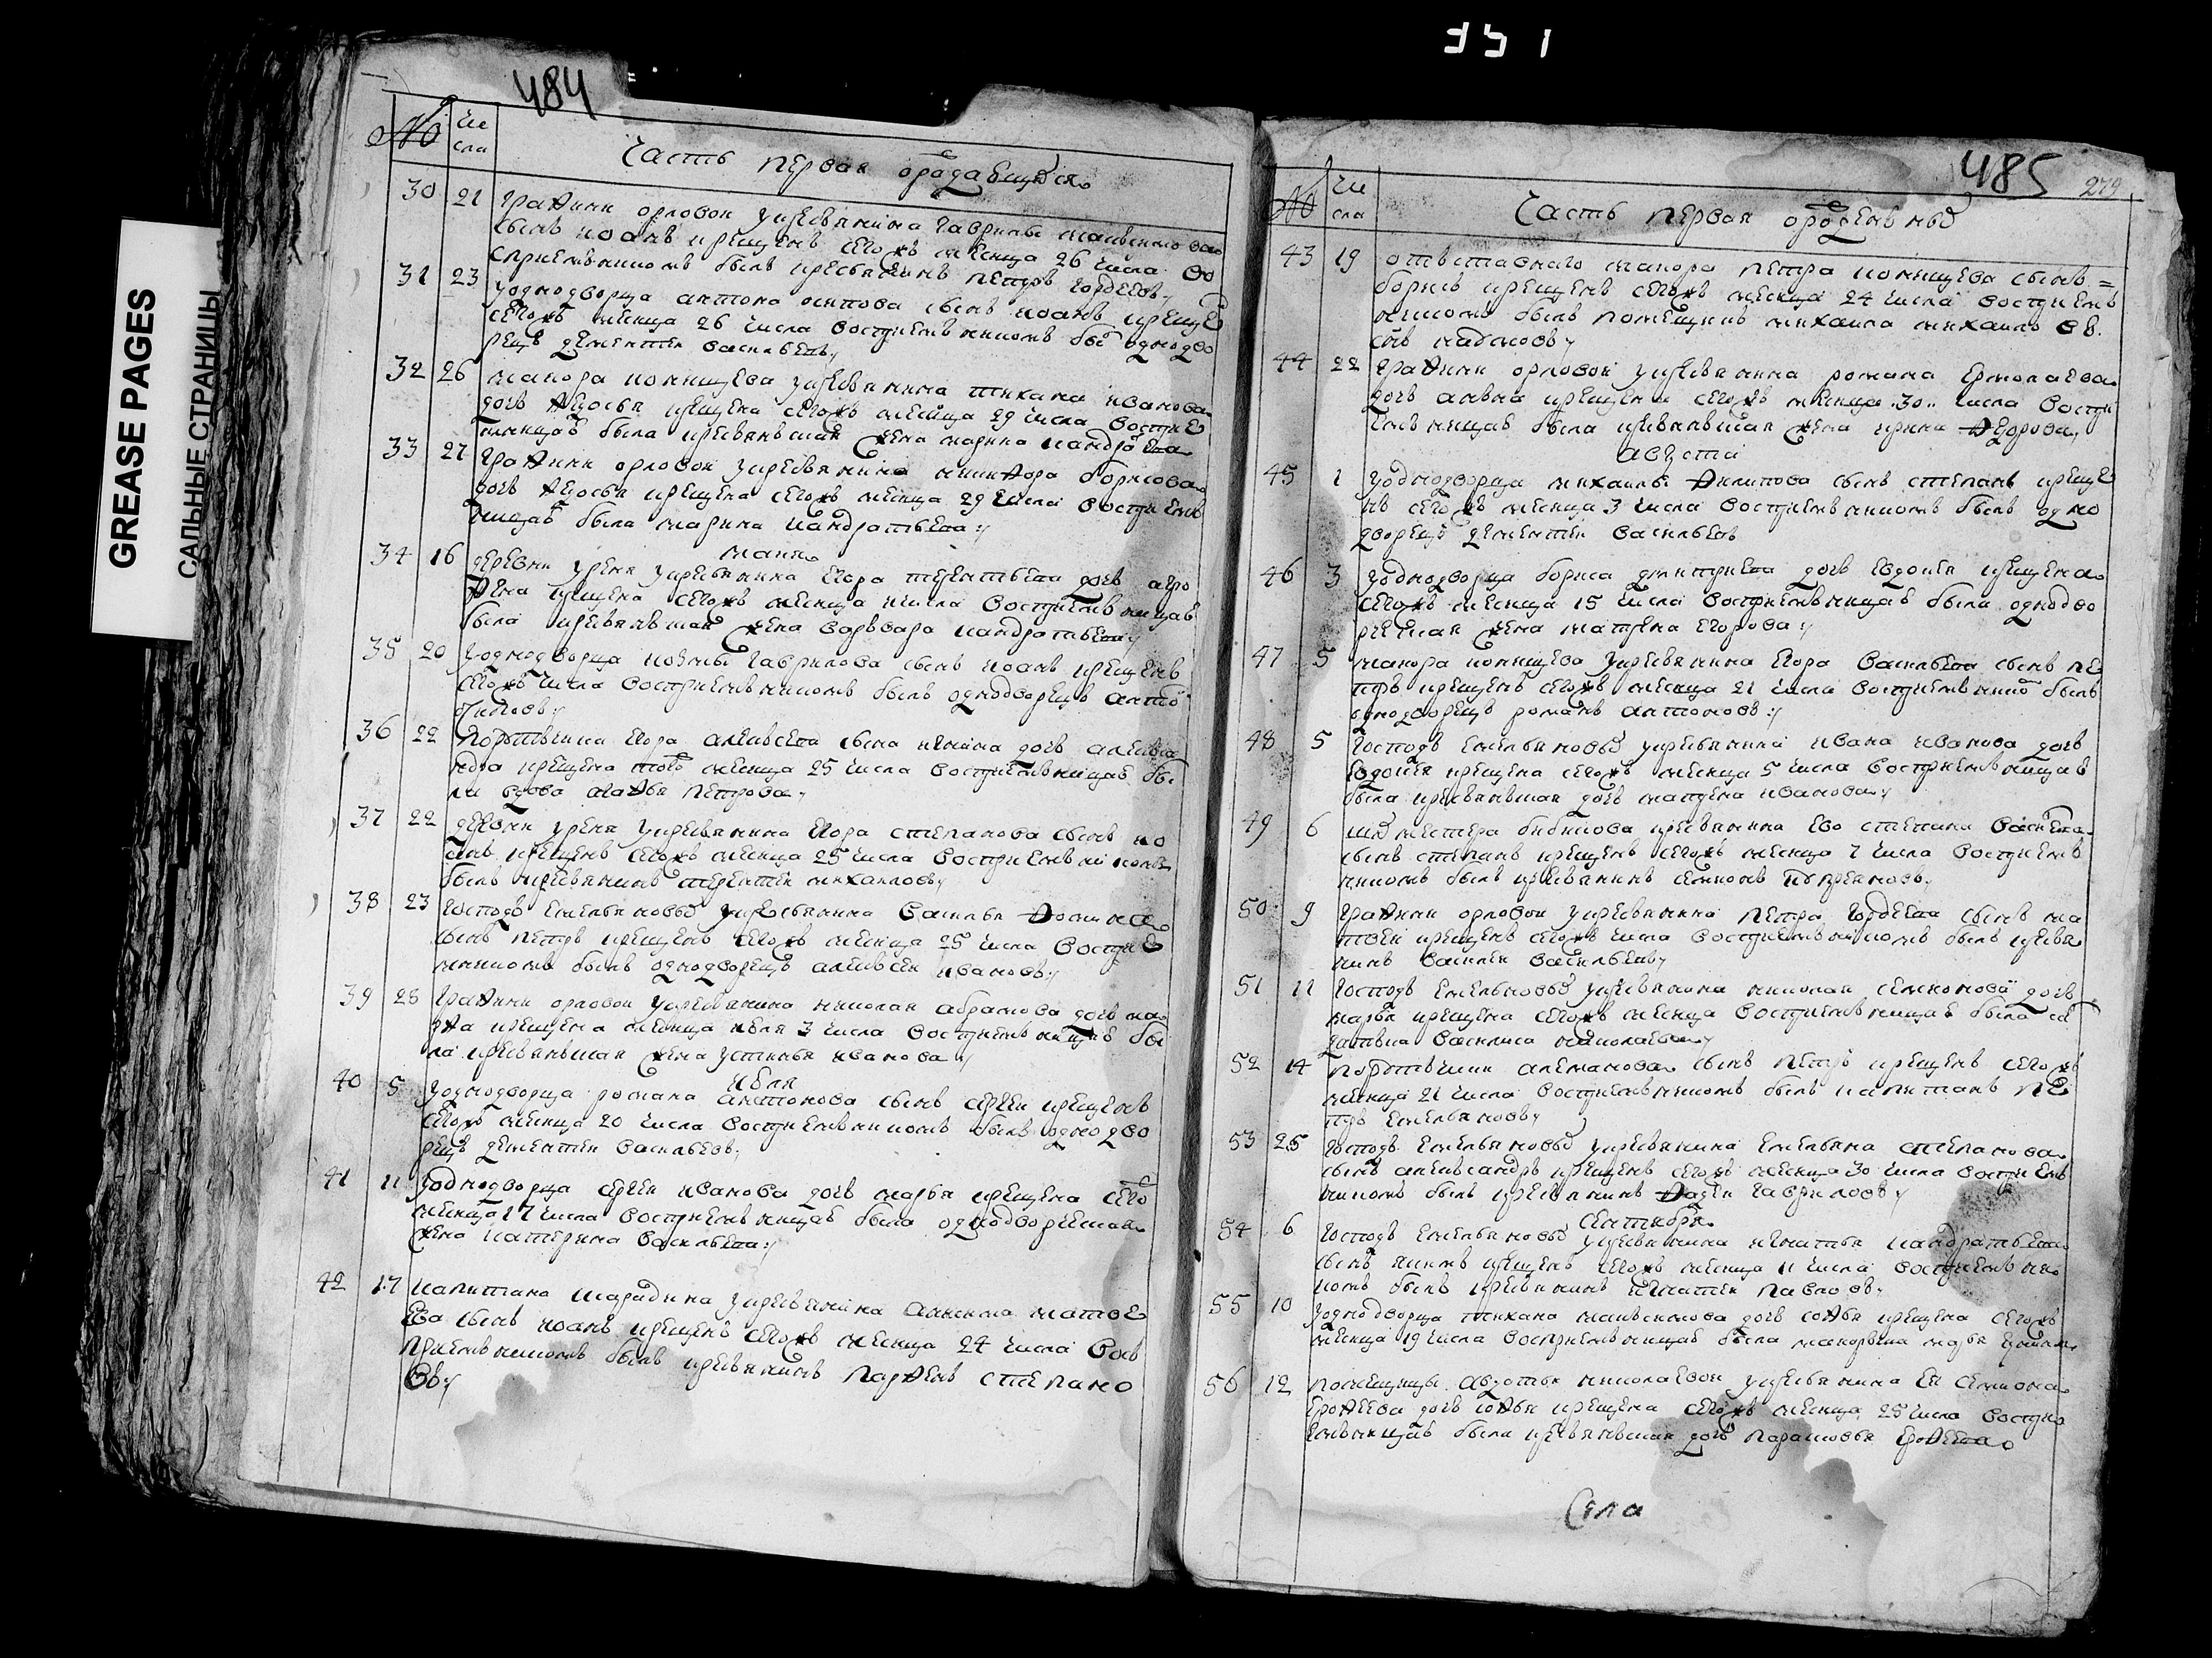 151
GREASE PAGES
САЛЬНЫЕ СТРАНИЦЫ
484
№ Чи
сла
Часть первая о раждающихся
30 21 Графини орловой у крестьянина гаврилы максимова
сынъ иоанъ крещенъ сегожъ месяца 26 числа во
сприемникомъ былъ крестьянинъ петръ гордеевъ
31 23 у однодворца антона осипова сынъ иоанъ креще
сегожъ месяца 26 числа восприемникомъ бы однодво
рецъ дементей васильевъ
32 26 маиора кокищева у крестьянина тихана иванова
дочь федосья крещена сегожъ месяца 29 числа восприе
мницаю была крестьянская жена марина кандратьева
33 27 Графини орловой у крестьянина никифора борисова
дочь федосья крещена сегожъ месяца 29 числа восприем
ницаю была марина кандратьева
маия
34 16 деревни уреня у крестьянина егора терентьева дочь агро
фена крещена сегожъ месяца числа восприемницаю
была крестьянская жена варвара кандратьева
35 20 у однодворца козмы гаврилова сынъ иоанъ крещенъ
сегожъ числа восприемникомъ былъ однодворецъ антон
36 22 егора алексеева сына дочь алексан
дра крещена того месяца 25 числа восприемницаю бы
ла вдова агафья петрова
37 22 деревни уреня у крестьянина егора степанова сынъ ио
анъ крещенъ сегожъ месяца 25 числа восприемникомъ
былъ крестьянинъ терентей михаиловъ
38 23 Господъ емельяновыхъ у крестьянина василья фомина
сынъ петръ крещенъ сегожъ месяца 25 числа восприе
мникомъ былъ однодворецъ алексей ивановъ
39 28 Графини орловой у крестьянина николая абрамова дочь ма
рфа крещена месяца июня 3 числа восприемницаю бы
ла крестьянская жена устинья иванова
июля
40 5 у однодворца романа антонова сынъ сергей крещенъ
сегожъ месяца 20 числа восприемникомъ былъ однодво
рецъ дементей васильевъ
41 11 у однодворца сергея иванова дочь марья крещена сего
месяца 17 числа восприемницаю была однодворческая
жена катерина васильева
42 17 капитана шарадина у крестьянина алексея матве
ева сынъ иоанъ крещенъ сегожъ месяца 24 числа вос
приемникомъ былъ крестьянинъ парфенъ степано
въ
485 279
№ Чи
сла
Часть первая о рожденныхъ
43 19 отъставного маиора петра кокищева сынъ =
борисъ крещенъ сегожъ месяца 24 числа восприем
никомъ былъ помещикъ михаила михаиловъ
сынъ
44 22 Графини орловой у крестьянина романа ермолаева
дочь анна крещена сегожъ месяца 30 числа воспри
емницаю была крестьянская жена ирина федорова
августа
45 1 у однодворца михаилы филипова сынъ степанъ креще
нъ сегожъ месяца 3 числа восприемникомъ былъ одно
дворецъ дементей васильевъ
46 3 у однодворца бориса дмитриева дочь евдокия крещена
сегожъ месяца 15 числа восприемницаю была однодво
рческая жена матрена егорова
47 5 маиора кокищева у крестьянина егора васильева сынъ пе
тръ крещенъ сегожъ месяца 21 числа восприемнико былъ
однодворецъ романъ антоновъ
48 5 Господъ емельяновыхъ у крестьянина ивана иванова дочь
евдокея крещена сегожъ месяца 5 числа восприемницаю
была крестьянская дочь матрена иванова
49 6 бибикова крестьянина ево степана васильева
сынъ степанъ крещенъ сегожъ месяца 7 числа восприем
никомъ былъ крестьянинъ семионъ
50 9 Графини орловой у крестьянина петра гордеева сынъ ма
твеи крещенъ сегожъ числа восприемникомъ былъ крестья
нинъ василей васильевъ
51 11 Господъ емельяновыхъ у крестьянина николая семионова дочь
марья крещена сегожъ месяца восприемницаю была сол
датка василиса николаева
52 14 сынъ петръ крещенъ сегожъ
месяца 21 числа восприемникомъ былъ капитанъ пе
тръ емельяновъ
53 25 Господъ емельяновыхъ у крестьянина емельяна степанова
сынъ александръ крещенъ сегожъ месяца 30 числа восприем
никомъ былъ крестьянинъ фадей гавриловъ
сентября
54 6 Господъ емельяновыхъ у крестьянина игнатья кандратьева
сынъ якимъ крещенъ сегожъ месяца 11 числа восприемни
комъ былъ крестьянинъ игнатей павловъ
55 10 у однодворца тихана максимова дочь софья крещена сегожъ
месяца 19 числа восприемницаю была маиорша марья
56 12 помещицы авдотьи николаевой у крестьянина ея семиона
ерофеева дочь софья крещена сегожъ месяца 25 числа воспри
емницаю была крестьянская дочь парасковья ерофеева
Села